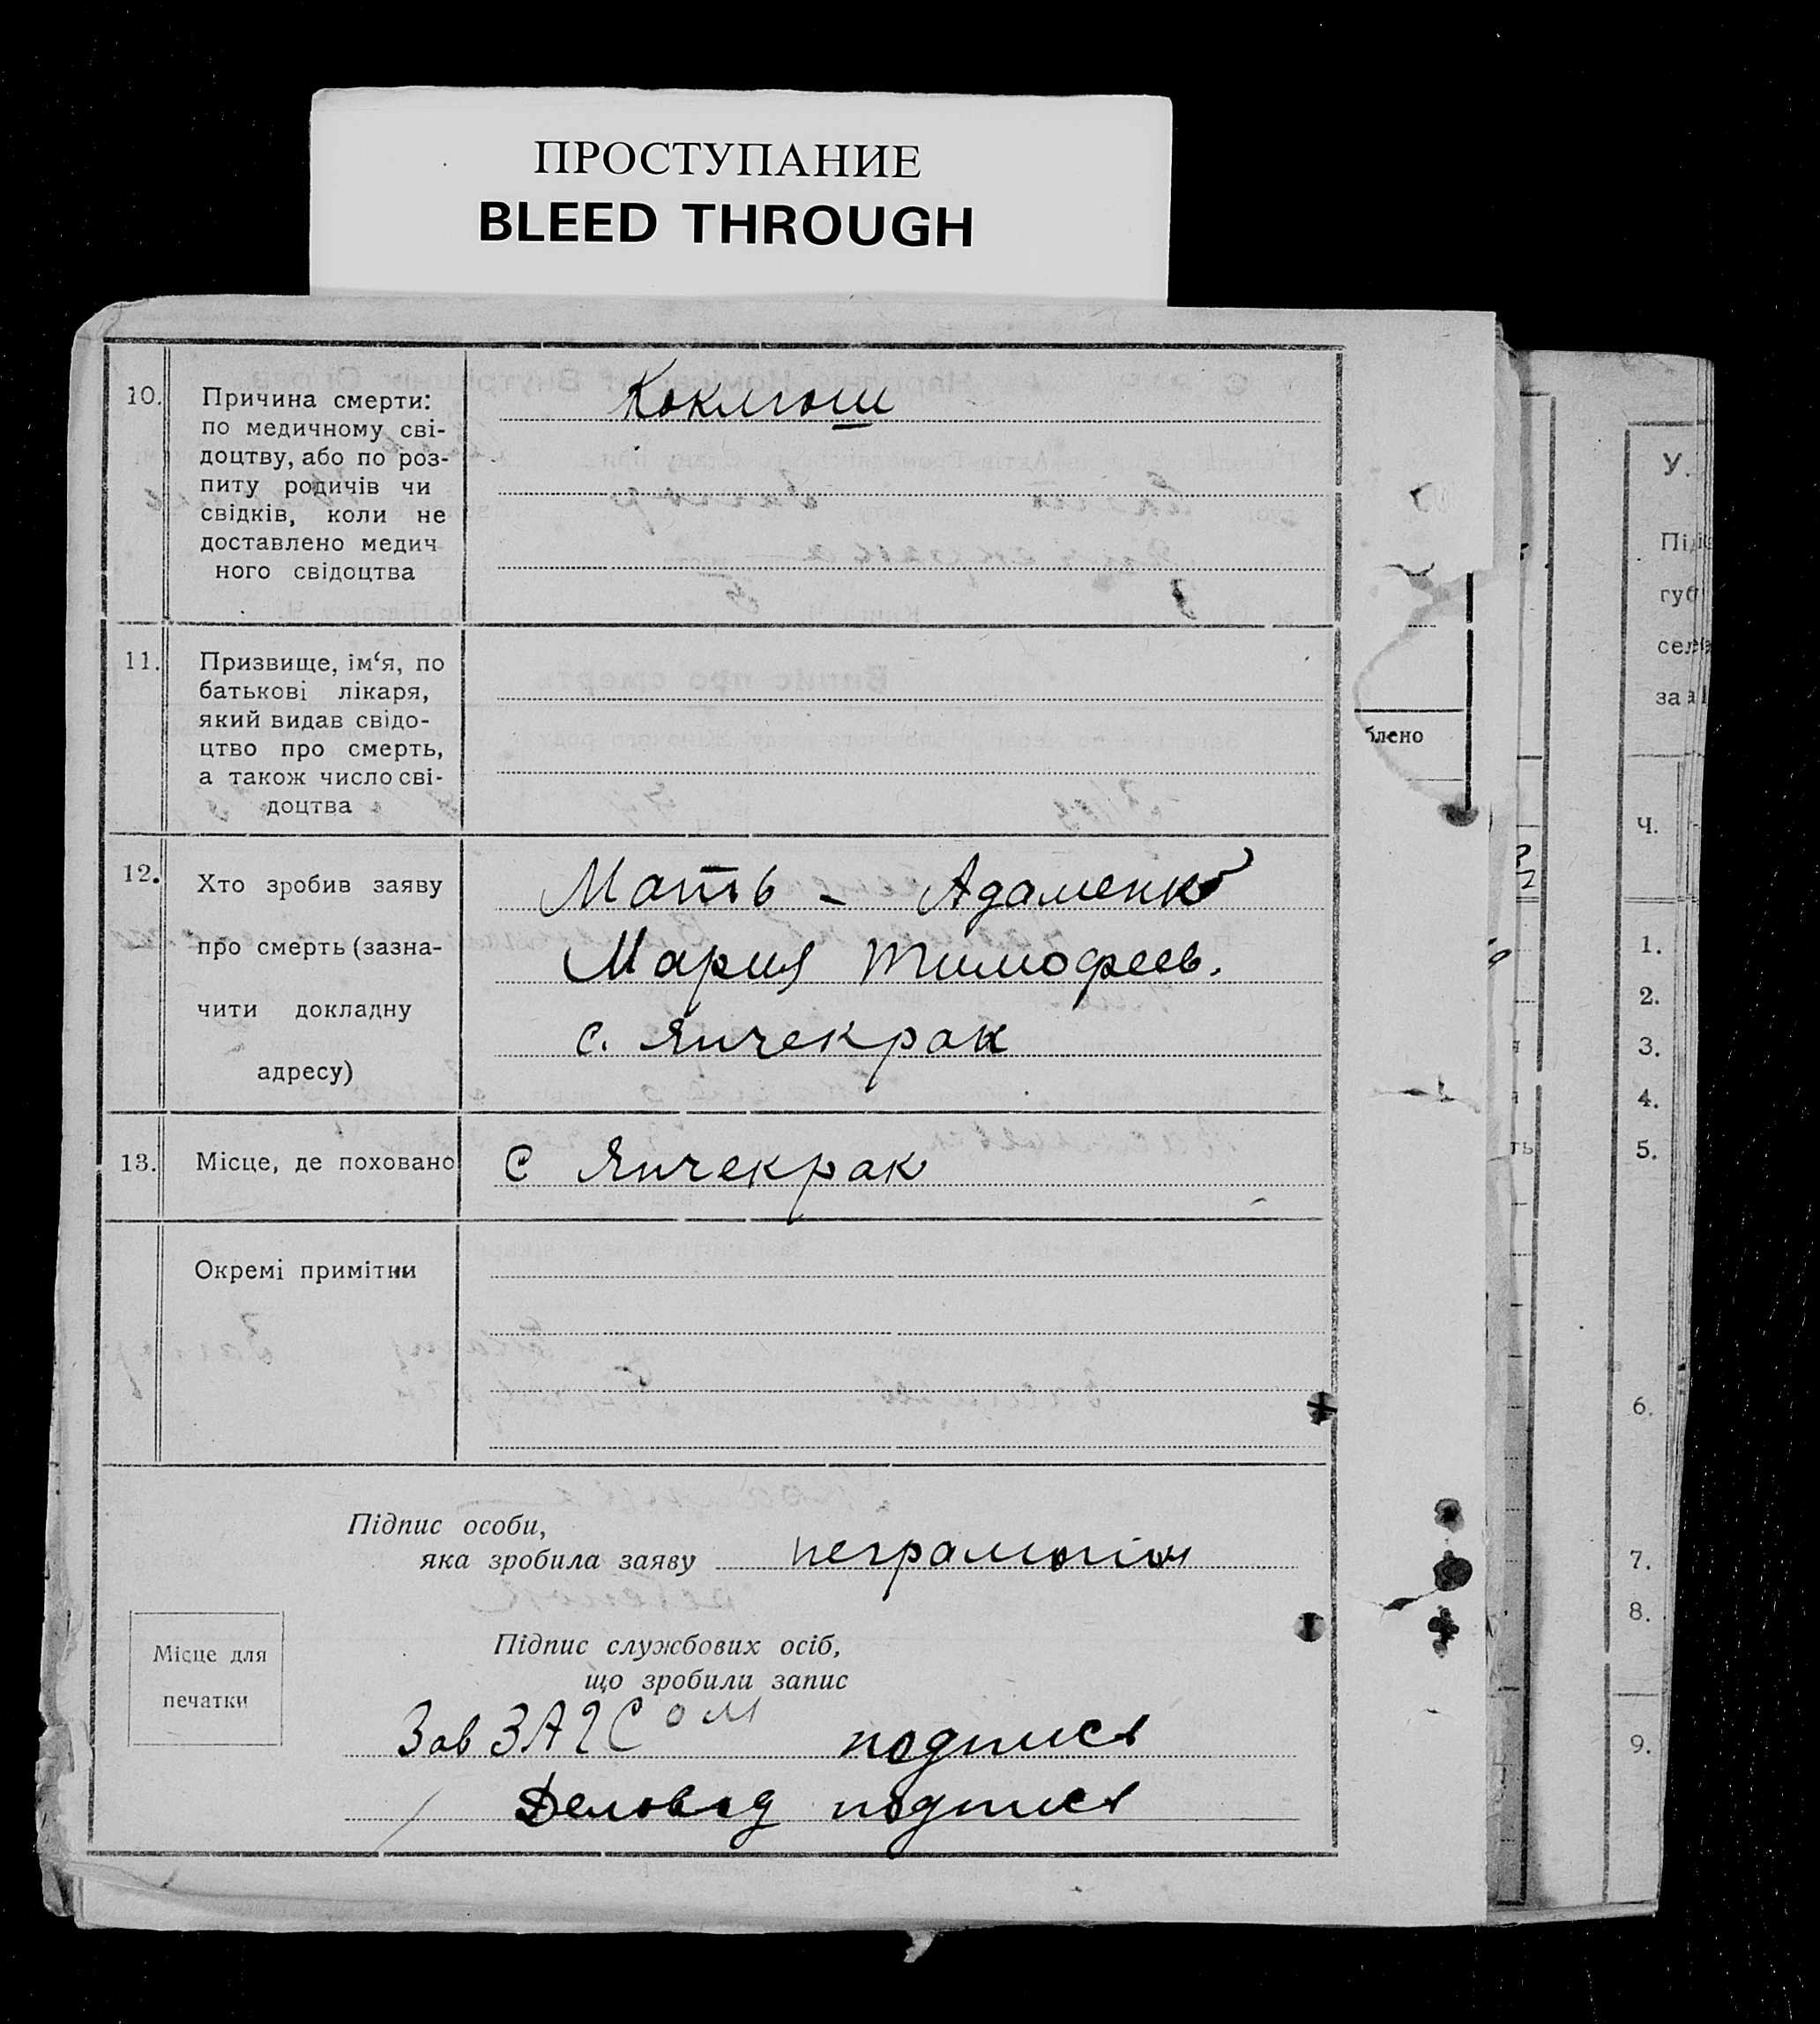 ПРОСТУПАНИЕ
BLEED THROUGH
10.
Причина смерти:
по медичному сві-
доцтву, або по роз-
питу родичів чи
свідків, коли не
доставлено медич
ного свідоцтва
Коклюш
11.
Призвище, ім‘я, по
батькові лікаря,
який видав свідо-
цтво про смерть,
а також число сві-
доцтва
12.
Хто зробив заяву
про смерть (зазна-
чити докладну
адресу)
Мать - Адаменко
Мария Тимофеев.
с. Янчекрак
13.
Місце, де поховано
с Янчекрак
Окремі примітки
Підпис особи,
яка зробила заяву
Місце для
печатки
Підпис службових осіб,
що зробили запис
Зав ЗАГСом подпись
Деловод подпись
блено
У.
губ
Ч.
1.
2.
3.
4.
5.
6.
7.
8.
9.